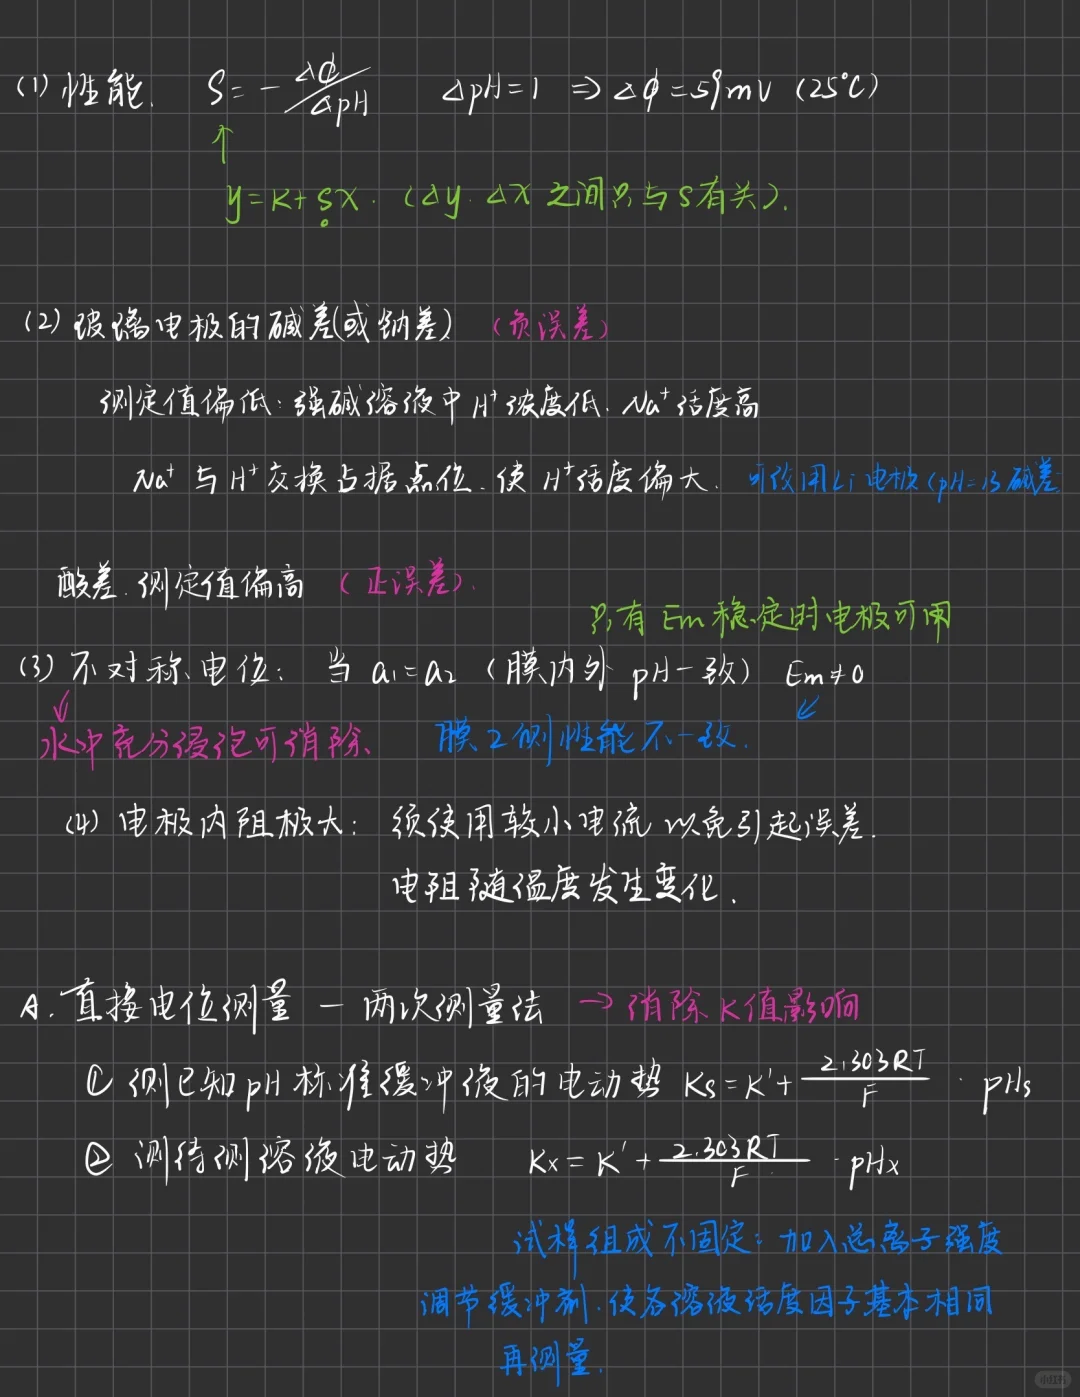 (1) 性能. S = - Δφ/ΔpH ΔpH=1 ⇒ Δφ=59mV (25℃)
↑
y=K+Sx. (Δy. Δx 之间只与S有关).
(2) 玻璃电极的碱差(或钠差) (负误差)
测定值偏低: 强碱溶液中H⁺浓度低. Na⁺活度高
Na⁺与H⁺交换占据点位. 使H⁺活度偏大. 可改用Li电极(pH=13碱差
酸差. 测定值偏高 (正误差).
只有Em稳定时电极可用
(3) 不对称电位: 当 a₁=a₂ (膜内外 pH一致) Em≠0
水中充分浸泡可消除. 膜2侧性能不一致.
(4) 电极内阻极大: 须使用较小电流以免引起误差.
电阻随温度发生变化.
A. 直接电位测量 — 两次测量法 → 消除K值影响
① 测已知pH标准缓冲液的电动势 Ks=K'+ 2.303RT/F · pHs
② 测待测溶液电动势 Kx=K'+ 2.303RT/F · pHx
试样组成不固定: 加入总离子强度
调节缓冲剂. 使各溶液活度因子基本相同
再测量.
小红书